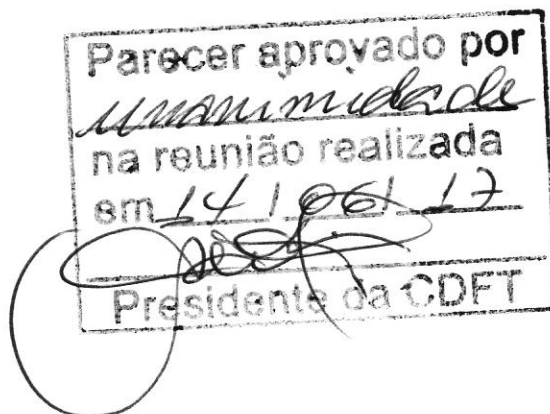 Parecer aprovado por
unanimidade
na reunião realizada
em 14 / 06 / 17
Presidente da CDFT